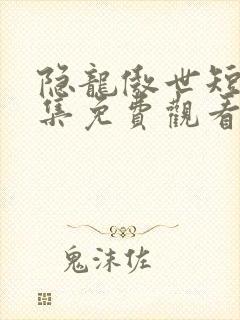 隐龍傲世短
集免費觀看
鬼沫佐